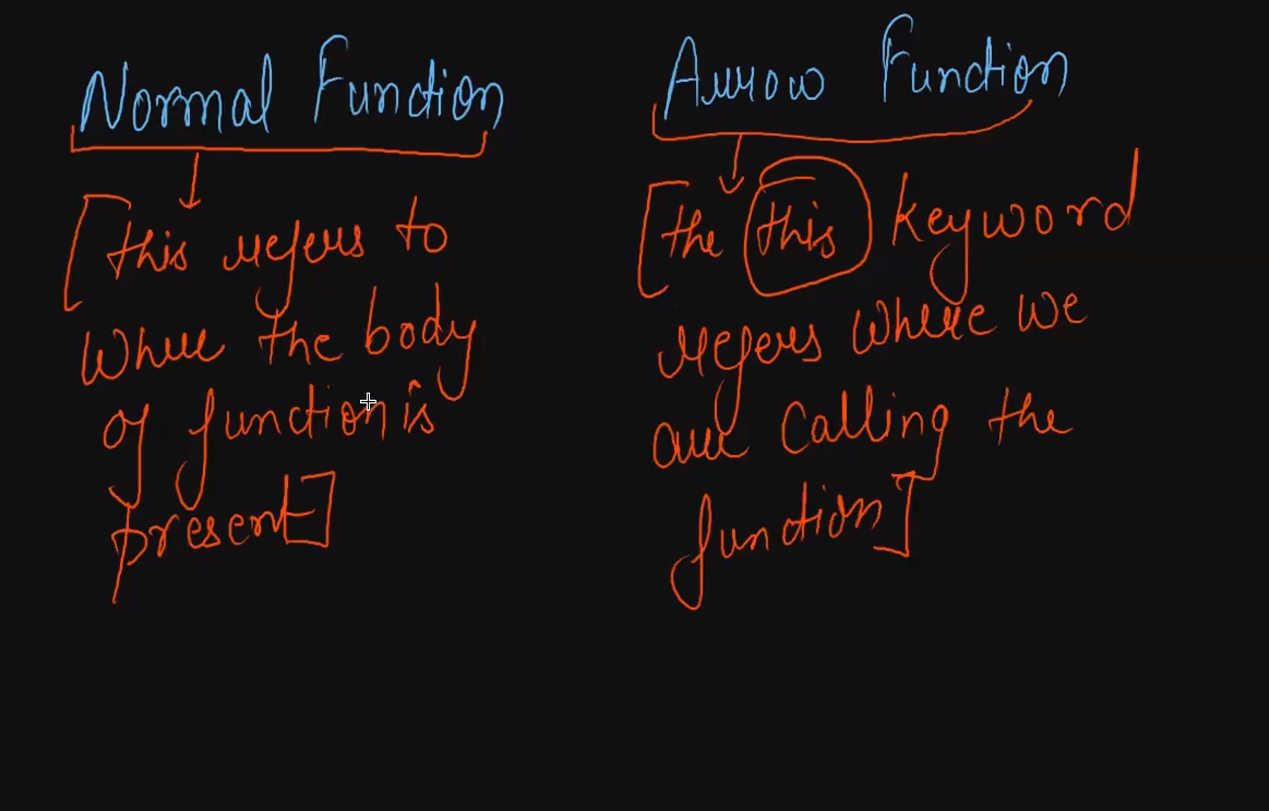 Normal Function
[this refers to
where the body
of function is
present]
Arrow Function
[the this keyword
refers where we
are calling the
function]